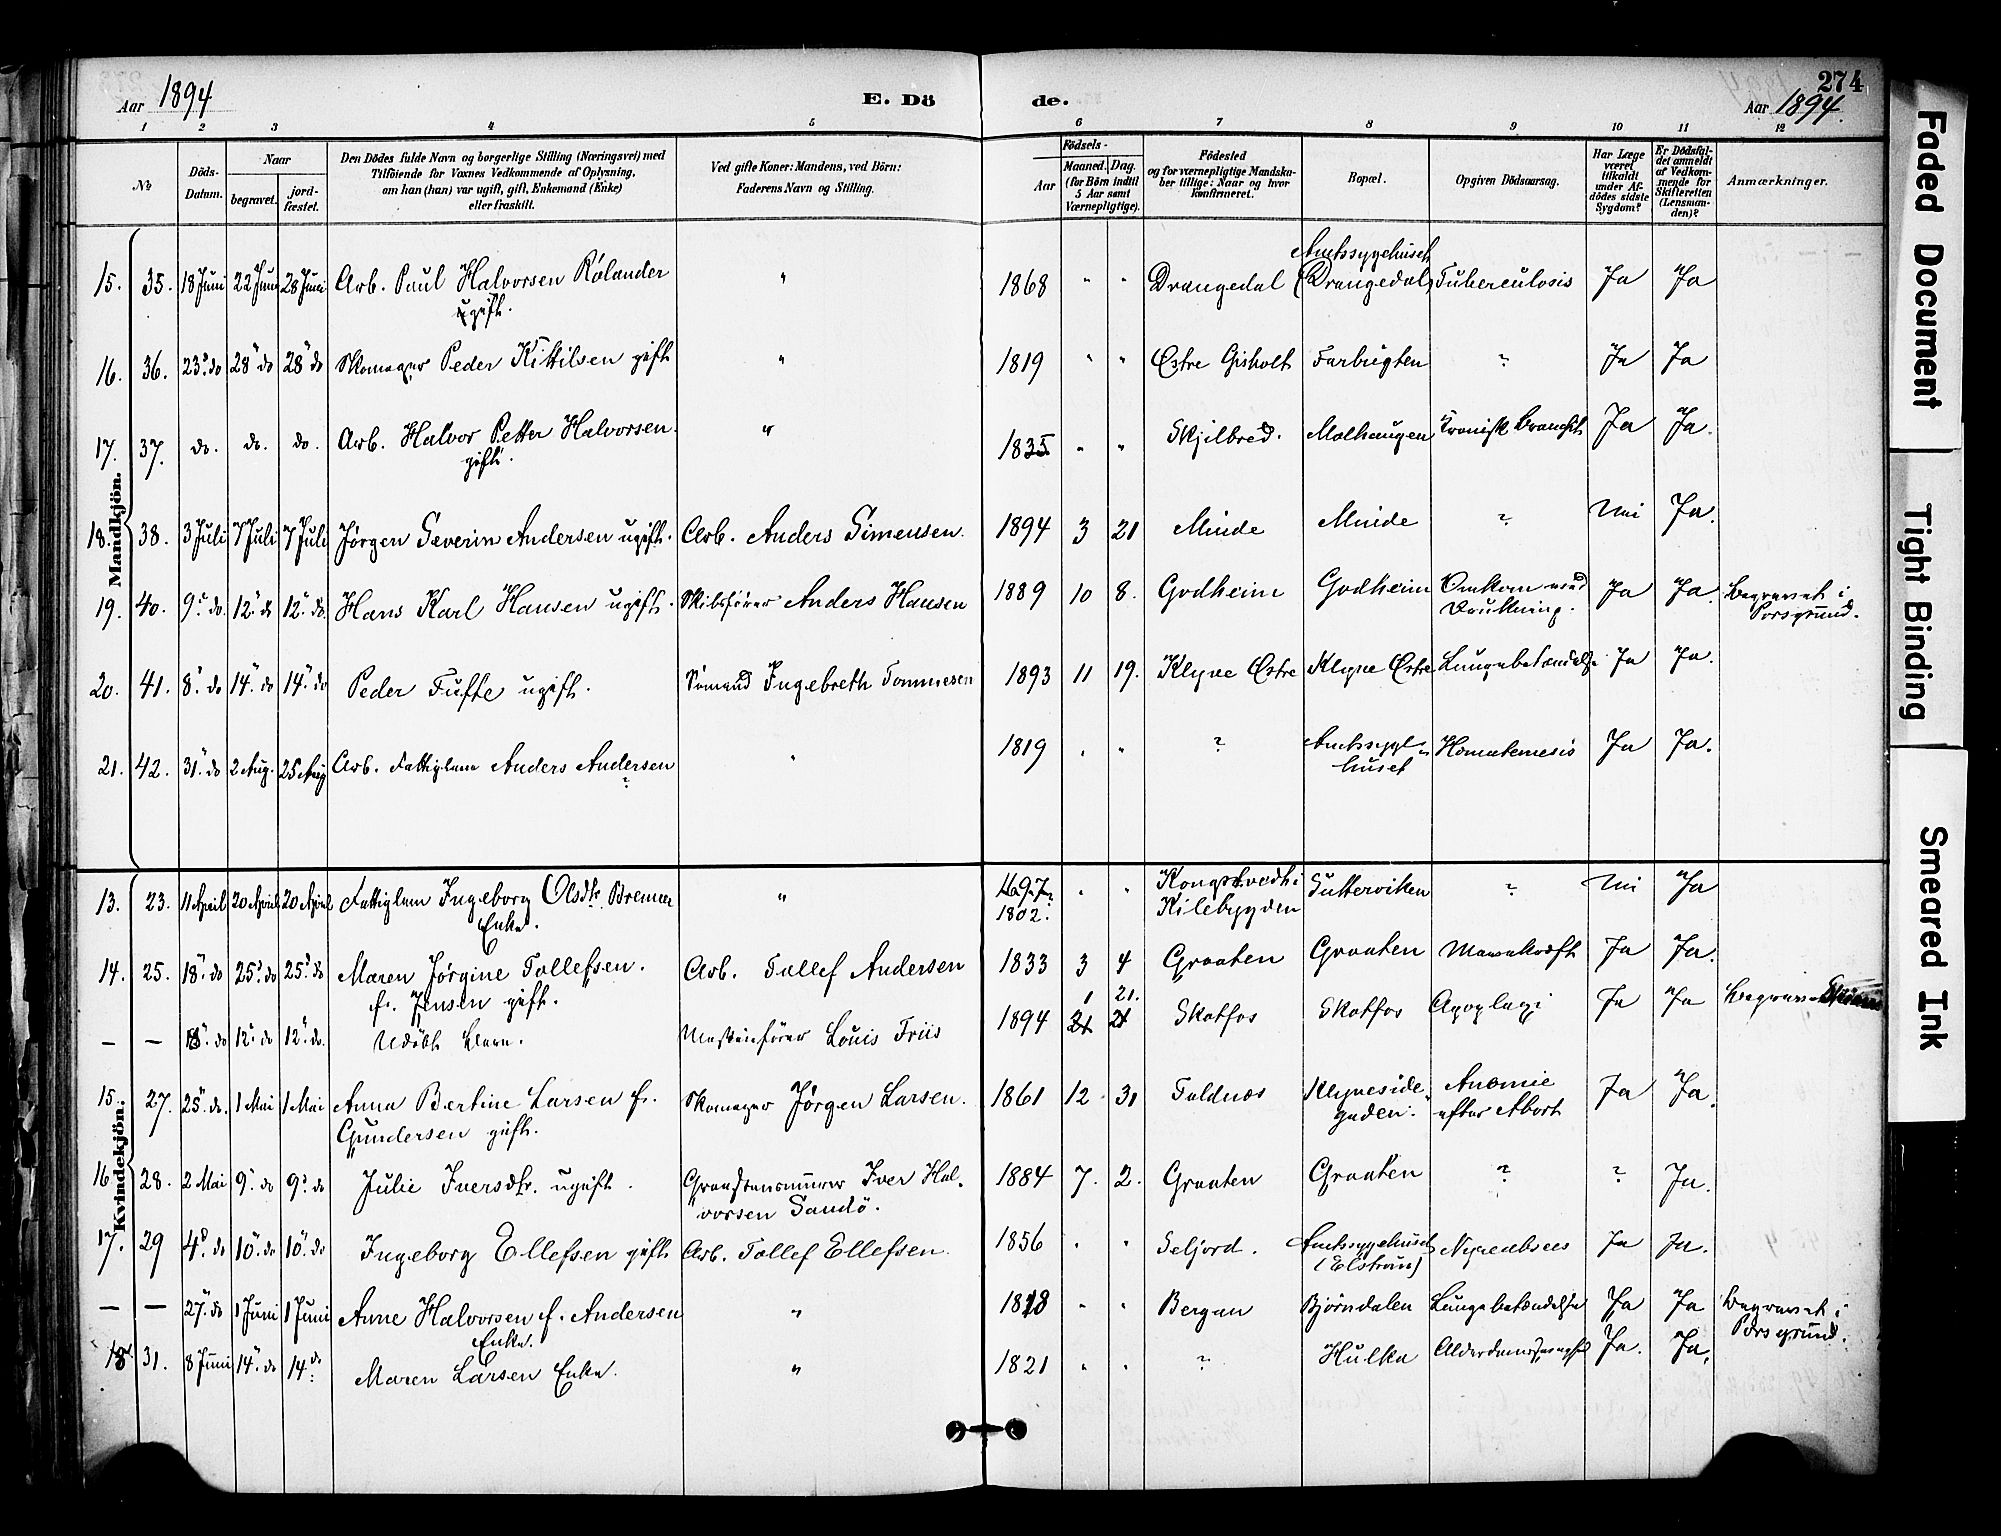 Aar 1894 E. Dö de. 274
Aar 1894.
1 2 3 4 5 6 7 8 9 10 11 12
No
Döds-Datum.
Naar
begravet.
jord-fæstet.
Den Dödes fulde Navn og borgerlige Stilling (Næringsvei) med
Tilföiende for Voxnes Vedkommende af Oplysning,
om han (hun) var ugift, gift, Enkemand (Enke)
eller fraskilt.
Ved gifte Koner: Mandens, ved Börn:
Faderens Navn og Stilling.
Födsels-
Aar
Maaned. Dag.
(for Börn indtil
5 Aar samt
Værnepligtige).
Födested
og for værnepligtige Mandska-
ber tillige: Naar og hvor
konfirmeret.
Bopæl.
Opgiven Dödsaarsag.
Har Læge
været
tilkaldt
under Af-
dödes sidste
Sygdom?
Er Dödsfal-
det anmeldt
af Vedkom-
mende for
Skifteretten
(Lensman-
den)?
Anmærkninger.
Mandkjön.
15. 35. 18 Juni 22 Juni 28 Juni Arb. Paul Halvorsen Rólander " 1868 " " Drangedal Amtssygehuset Tuberculosis Ja Ja
ugift. (Drangedal)
16. 36. 23" do 28" do 28" do Skomager Peder Kittilsen gift " 1819 " " Østre Gisholt Farbrigten ? Ja Ja
17. 37. do. do. do. Arb. Halvor Petter Halvorsen. " 1835 " " Skjilbred. Molhaugen Kronisk Bronchit Ja Ja.
gift.
18. 38. 3 Juli 7 Juli 7 Juli Jørgen Severin Andersen ugift. Arb. Anders Simensen. 1894 3 21 Minde Minde ? Nei Ja.
19. 40. 9" do. 12" do 12" do. Hans Karl Hansen ugift. Skibsfører Anders Hansen 1889 10 8. Godheim Godheim Omkom ved Ja Ja. Begravet i
Drukning. Porsgrund.
20. 41. 8" do 14" do 14" do Peder Tufte ugift. Sømand Ingebreth Tommesen 1893 11 19. Klyve Østre Klyve Østre Lungebetændelse Ja Ja.
21. 42. 31" do 2 Aug. 25 Aug Arb. Fattiglem Anders Andersen " 1819 " " ? Amtssyge- Homatemesis Ja Ja.
? huset
Kvindekjön.
13. 23. 11 April 20 April 20 April Fattiglem Ingeborg Olsdtr. Bremer " " " Kongstvedt i Sutterviken ? Nei Ja
Enke. 1802. Kilebygden
14. 25. 18" do 25" do 25" do Maren Jørgine Tollefsen. Arb. Tollef Andersen 1833 3 4 Graaten Graaten Marakræft Ja Ja.
f. Jensen gift.
— — 8" do 12" do 12" do. Udøbt Barn. Maskinfører Louis Friis 1894 1 21. Skotfos Skotfos Apoplexi Ja Ja Begravet
15. 27. 25" do. 1 Mai 1 Mai Anna Bertine Larsen f. Skomager Jørgen Larsen. 1861 12 31 Foldnæs Klyveside- Anæmie Ja Ja.
Gundersen gift. gaden. efter Abort
16 28. 2 Mai 9" do 9" do Julie Iversdtr. ugift. Iver Hal- 1884 7. 2. Graaten Graaten ? ? Ja.
vorsen Sandö.
17. 29 4" do 10" do 10" do Ingeborg Ellefsen gift Arb. Tollef Ellefsen. 1856 " " Seljord. Amtssygehuset Nyreabsces Ja Ja.
(Elstrøm)
— — 27" do 1 Juni 1 Juni Anne Halvorsen f. Andersen " 1818 " " Bergan Bjørndalen Lungebetændelse Ja Ja Begravet i
Enke. Porsgrund.
18 31. 8 Juni 14" do 14 do Maren Larsen Enke. " 1821 " " ? Hulka Ja. Ja.
Faded Document
Tight Binding
Smeared Ink